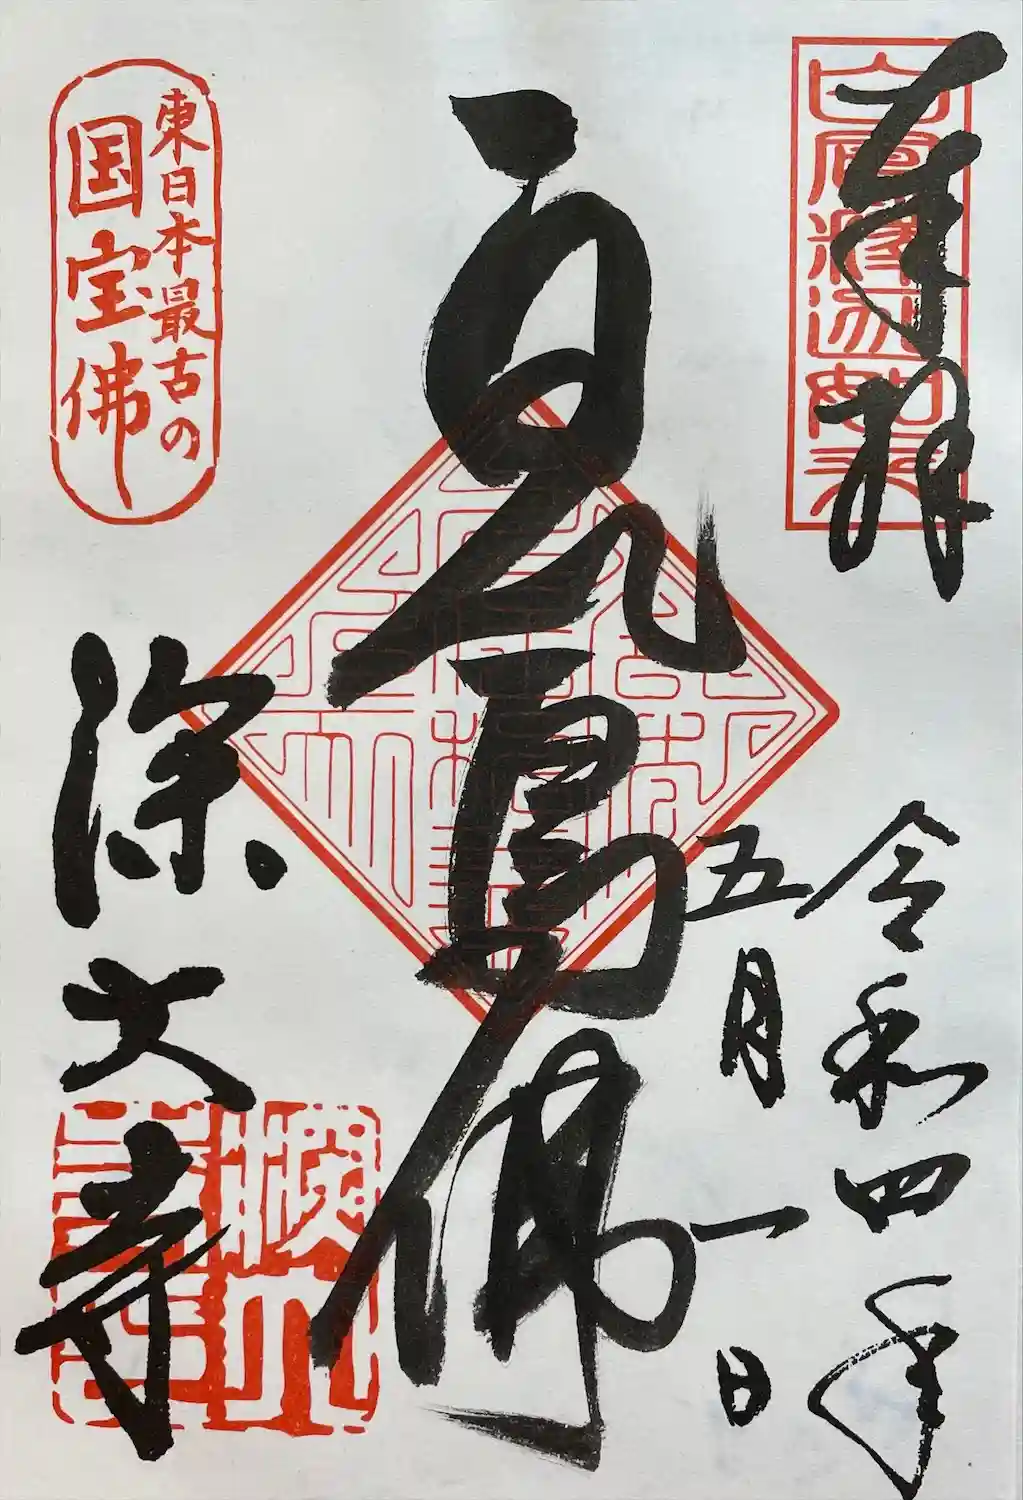 奉拝
白鳳釋迦如来
令和四年
五月一日
白鳳佛
東日本最古の
国宝佛
深大寺